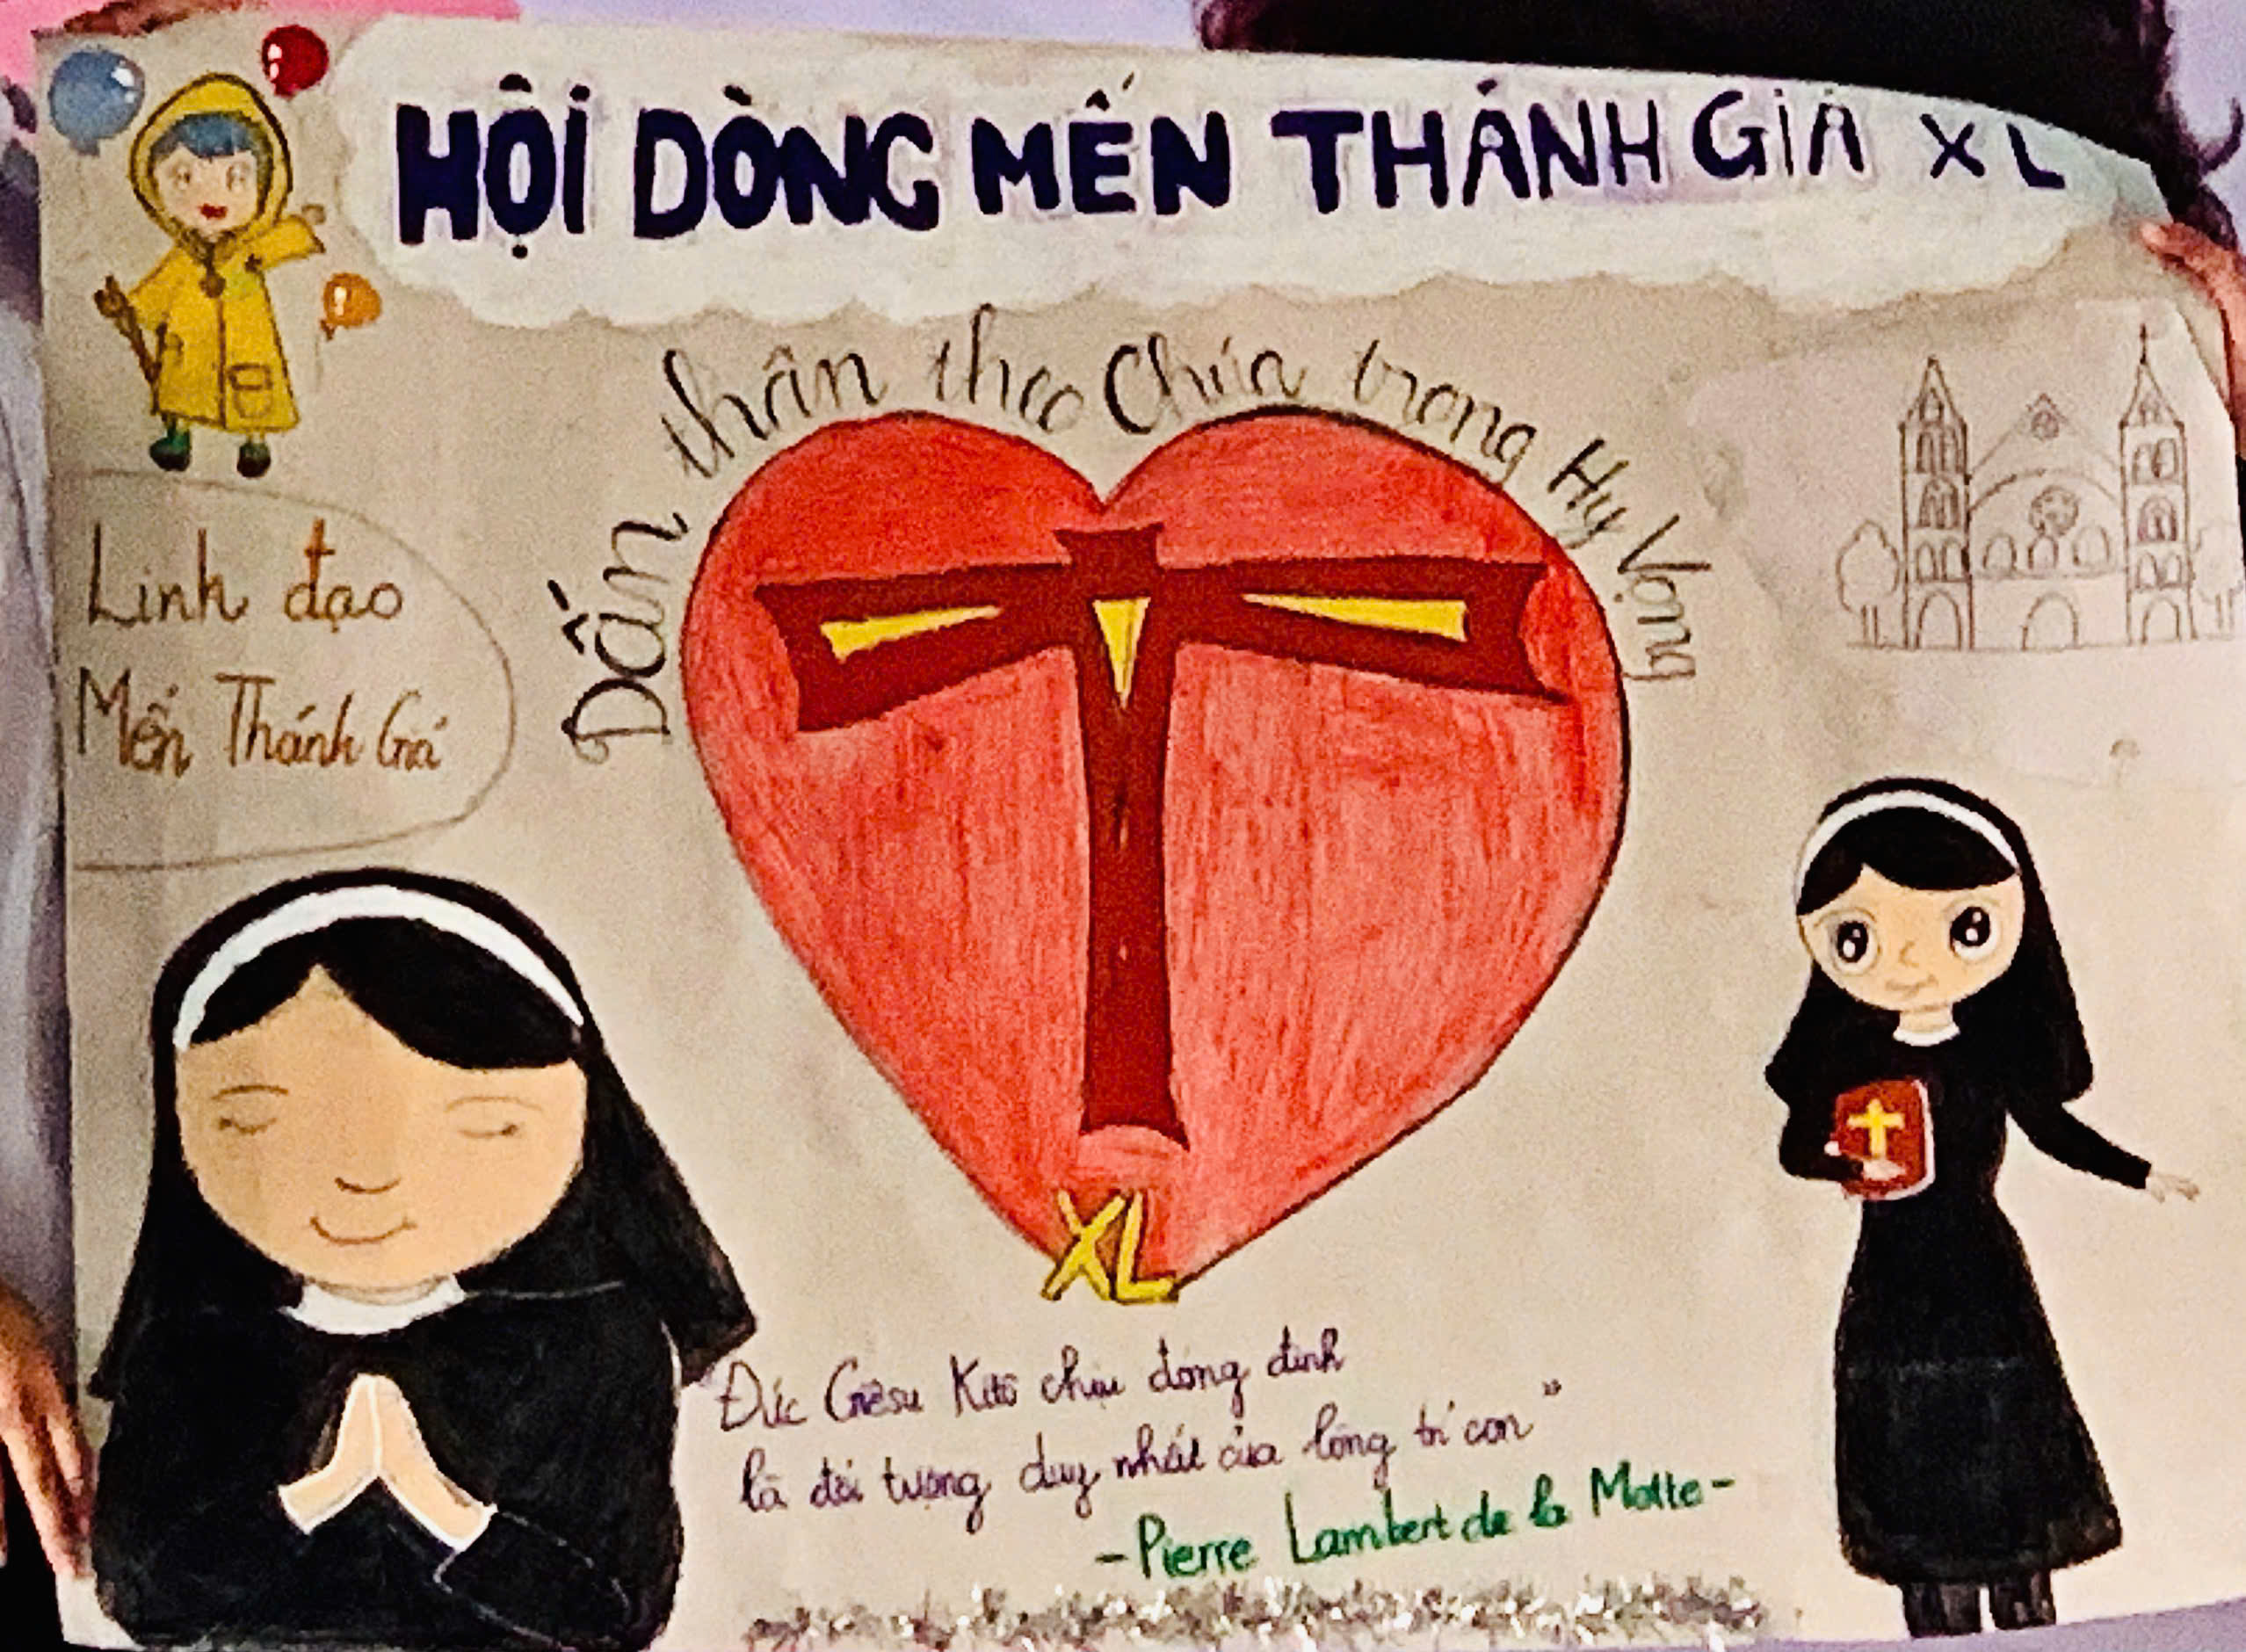 HỘI DÒNG MẾN THÁNH GIÁ XL
Dấn thân theo Chúa trong Hy Vọng
Linh đạo
Mến Thánh Giá
XL
Đức Giêsu Kitô chịu đóng đinh
là đối tượng duy nhất của lòng trí con"
-Pierre Lambert de la Motte-